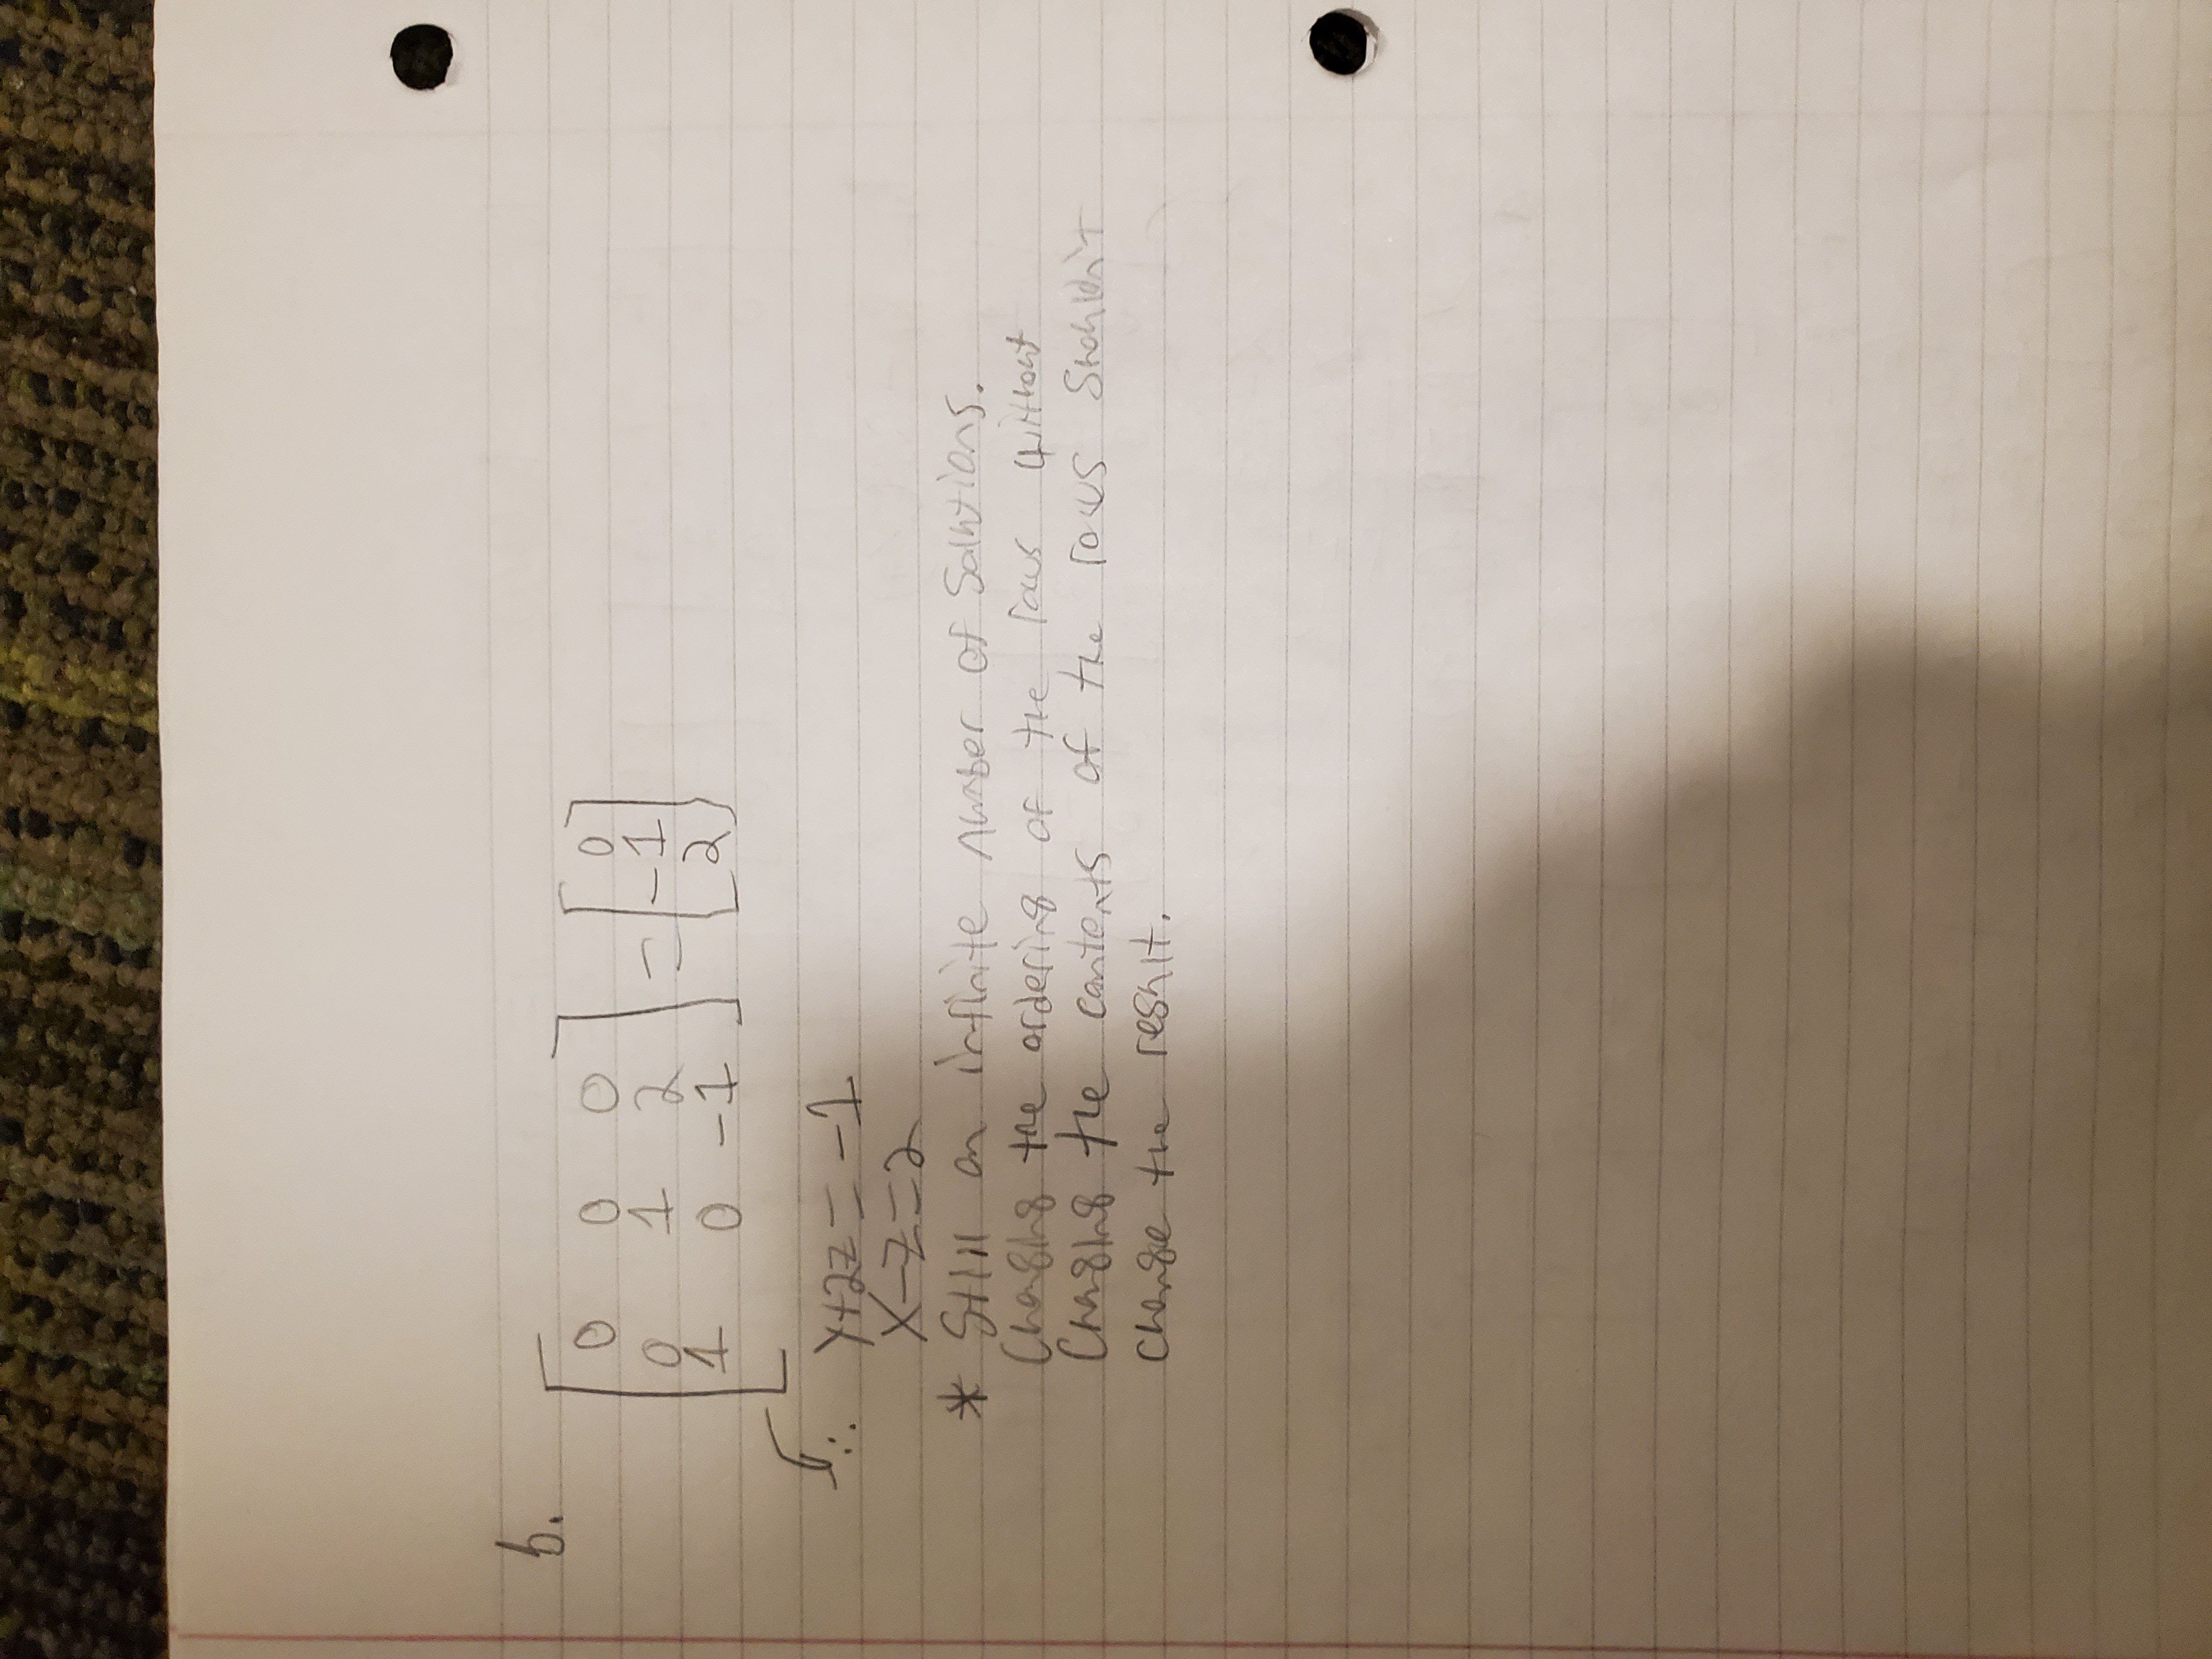 b.
0 0 0 0
0 1 2 = -1
1 0 -1 2
∴ y+2z = -1
x-z=2
* Still an infinite number of solutions.
Changing the ordering of the rows without
Changing the contents of the rows shouldn't
change the result.